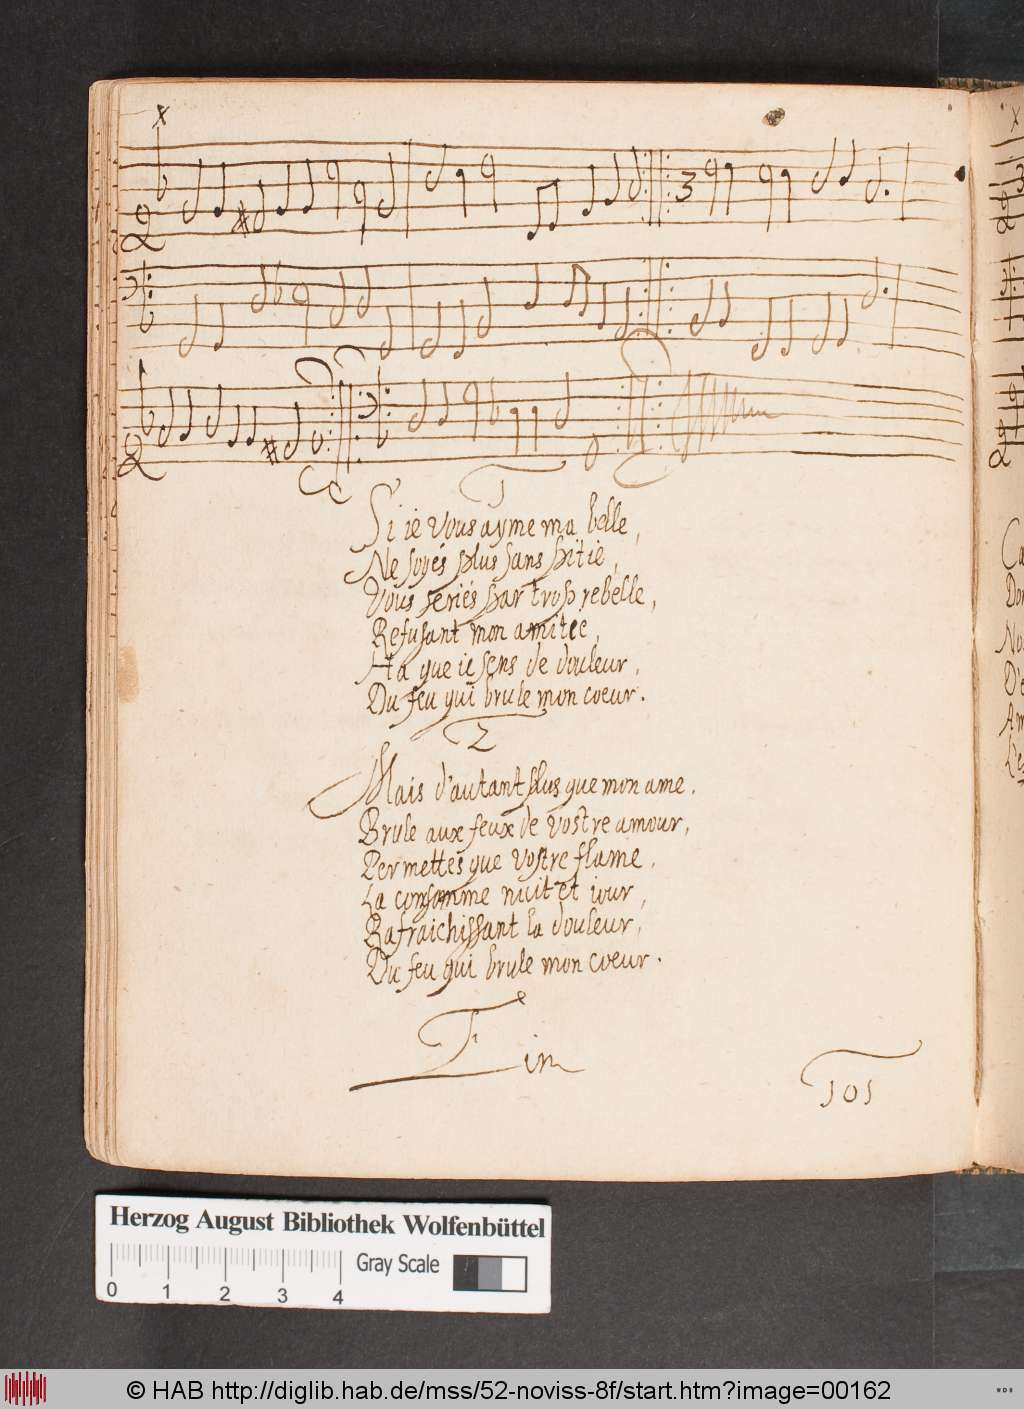 3
1
Si ie vous ayme ma belle,
Ne soyés plus sans pitie,
Vous seriés par trop rebelle,
Refusant mon amitee,
Ha que ie sens de douleur,
Du feu qui brule mon coeur.
2
Mais d'autant plus que mon ame.
Brule aux feux de vostre amour,
Permettes que vostre flame.
La consomme nuit et iour,
Rafraichissant la douleur,
Du feu qui brule mon coeur.
Fin
101
Herzog August Bibliothek Wolfenbüttel
Gray Scale
0 1 2 3 4
© HAB http://diglib.hab.de/mss/52-noviss-8f/start.htm?image=00162